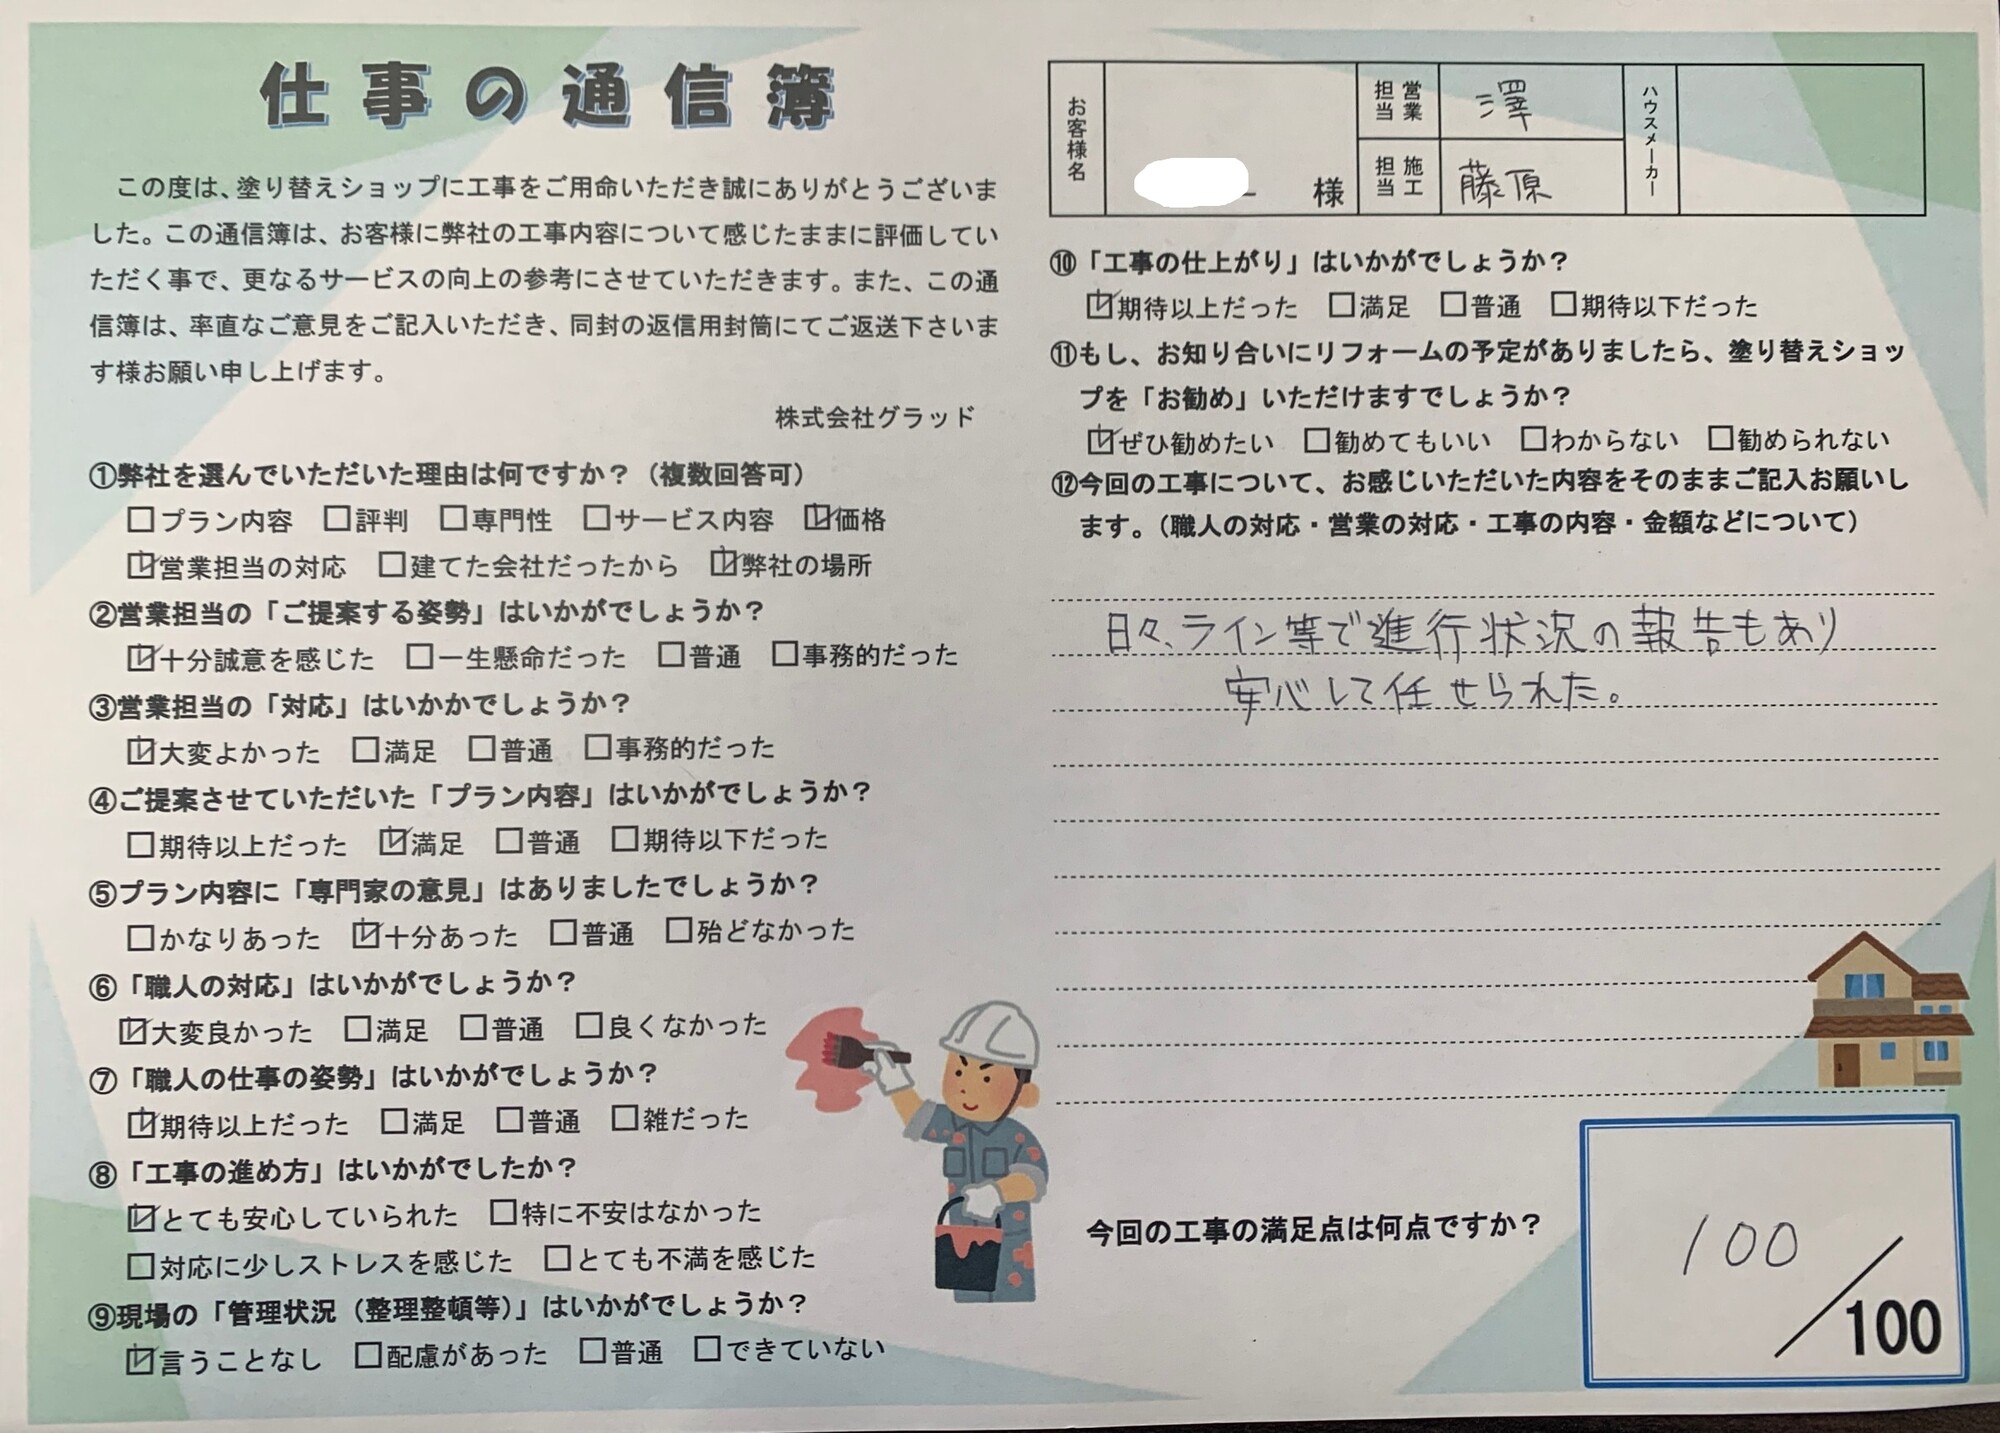 仕事の通信簿
この度は、塗り替えショップに工事をご用命いただき誠にありがとうございま
した。この通信簿は、お客様に弊社の工事内容について感じたままに評価してい
ただく事で、更なるサービスの向上の参考にさせていただきます。また、この通
信簿は、率直なご意見をご記入いただき、同封の返信用封筒にてご返送下さいま
す様お願い申し上げます。
株式会社グラッド
①弊社を選んでいただいた理由は何ですか？（複数回答可）
□プラン内容 □評判 □専門性 □サービス内容 ☑価格
☑営業担当の対応 □建てた会社だったから ☑弊社の場所
②営業担当の「ご提案する姿勢」はいかがでしょうか？
☑十分誠意を感じた □一生懸命だった □普通 □事務的だった
③営業担当の「対応」はいかかでしょうか？
☑大変よかった □満足 □普通 □事務的だった
④ご提案させていただいた「プラン内容」はいかがでしょうか？
□期待以上だった ☑満足 □普通 □期待以下だった
⑤プラン内容に「専門家の意見」はありましたでしょうか？
□かなりあった ☑十分あった □普通 □殆どなかった
⑥「職人の対応」はいかがでしょうか？
☑大変良かった □満足 □普通 □良くなかった
⑦「職人の仕事の姿勢」はいかがでしょうか？
☑期待以上だった □満足 □普通 □雑だった
⑧「工事の進め方」はいかがでしたか？
☑とても安心していられた □特に不安はなかった
□対応に少しストレスを感じた □とても不満を感じた
⑨現場の「管理状況（整理整頓等）」はいかがでしょうか？
☑言うことなし □配慮があった □普通 □できていない
お客様名 様 営業担当 澤 ハウスメーカー
施工担当 藤原
⑩「工事の仕上がり」はいかがでしょうか？
☑期待以上だった □満足 □普通 □期待以下だった
⑪もし、お知り合いにリフォームの予定がありましたら、塗り替えショッ
プを「お勧め」いただけますでしょうか？
☑ぜひ勧めたい □勧めてもいい □わからない □勧められない
⑫今回の工事について、お感じいただいた内容をそのままご記入お願いし
ます。（職人の対応・営業の対応・工事の内容・金額などについて）
日々、ライン等で進行状況の報告もあり
安心して任せられた。
今回の工事の満足点は何点ですか？
100／100